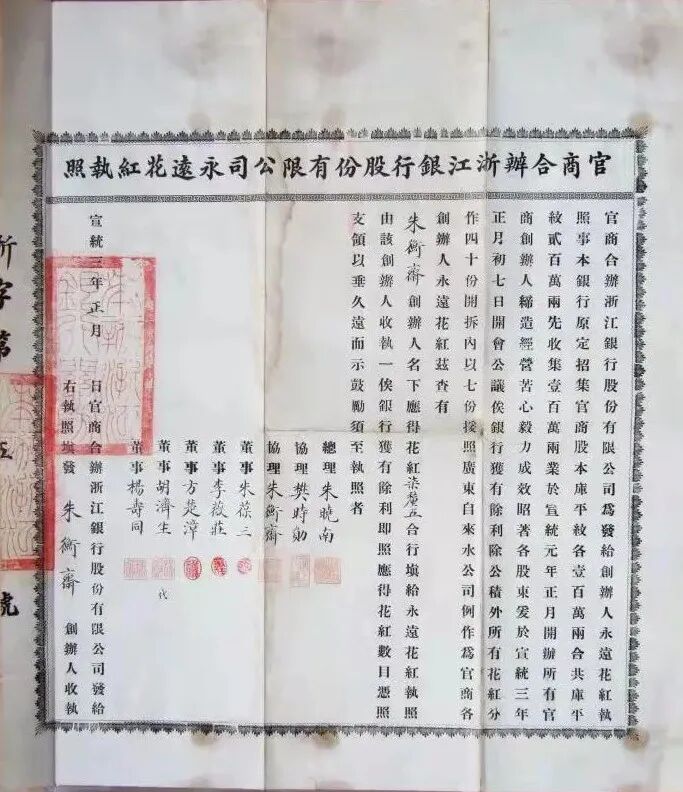 官商合辦浙江銀行股份有限公司永遠花紅執照
官商合辦浙江銀行股份有限公司爲發給創辦人永遠花紅執
照事本銀行原定招集官商股本庫平紋各壹百萬兩合共庫平
紋貳百萬兩先收集壹百萬兩業於宣統元年正月開辦所有官
商創辦人締造經營苦心毅力成效昭著各股東爰於宣統三年
正月初七日開會公議俟銀行獲有餘利除公積外所有花紅分
作四十份開拆內以七份援照廣東自來水公司例作爲官商各
創辦人永遠花紅茲查有
朱衛齋創辦人名下應得花紅柒釐五合行塡給永遠花紅執照
由該創辦人收執一俟銀行獲有餘利即照應得花紅數目憑照
支領以垂久遠而示鼓勵須至執照者
總理朱曉南
協理樊時勛
協理朱衛齋
董事朱葆三
董事李薇莊
董事方楚漳
董事胡濟生
代
董事楊壽同
右執照塡發 朱衛齋 創辦人收執
宣統三年正月 日官商合辦浙江銀行股份有限公司發給
浙字第
五
號